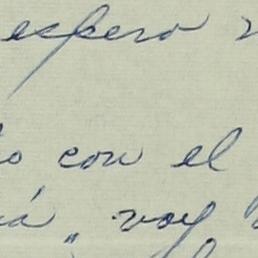 espero
con el
voy